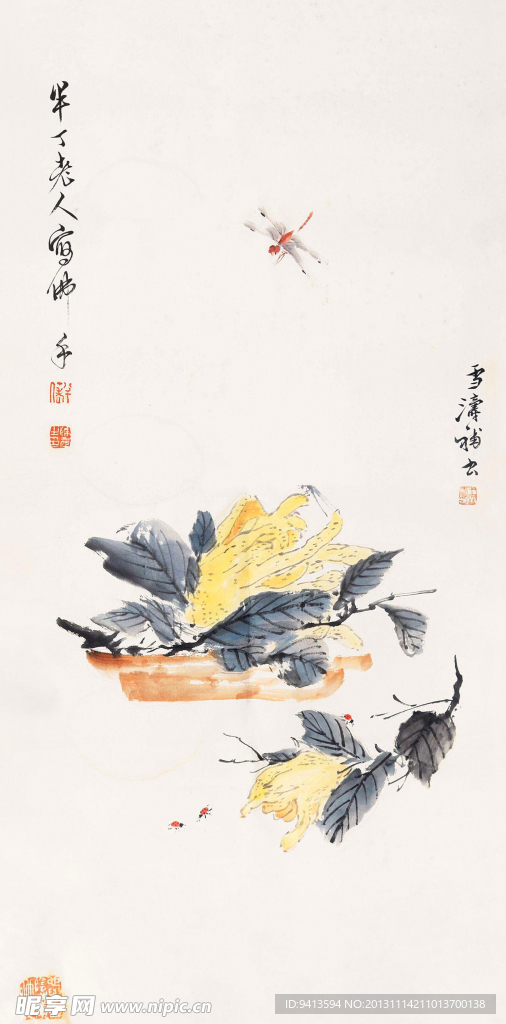 半丁老人写佛手
雪涛补虫
昵享网 www.nipic.cn
ID:9413594 NO:20131114211013700138